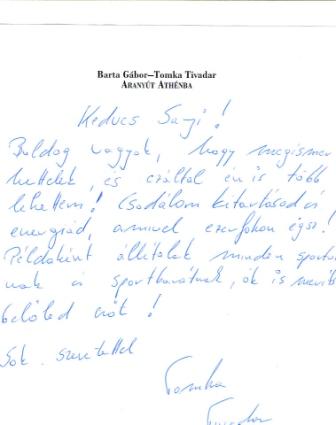 Barta Gábor–Tomka Tivadar
ARANYÚT ATHÉNBA
Kedves !
Boldog vagyok, hogy megismer
hettelek, és ezáltal én is több
lehettem! Csodálom kitartásod és
energiád, amivel ezerfokon égsz!
Példaként állítalak minden sportoló
nak és sportbarátnak, ők is merít
belőled erőt!
Sok szeretettel
Tomka
Tivadar